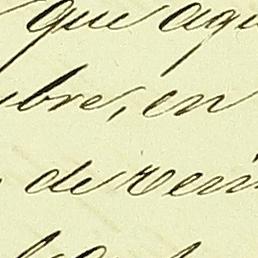 que aqu
bre, en
de vein